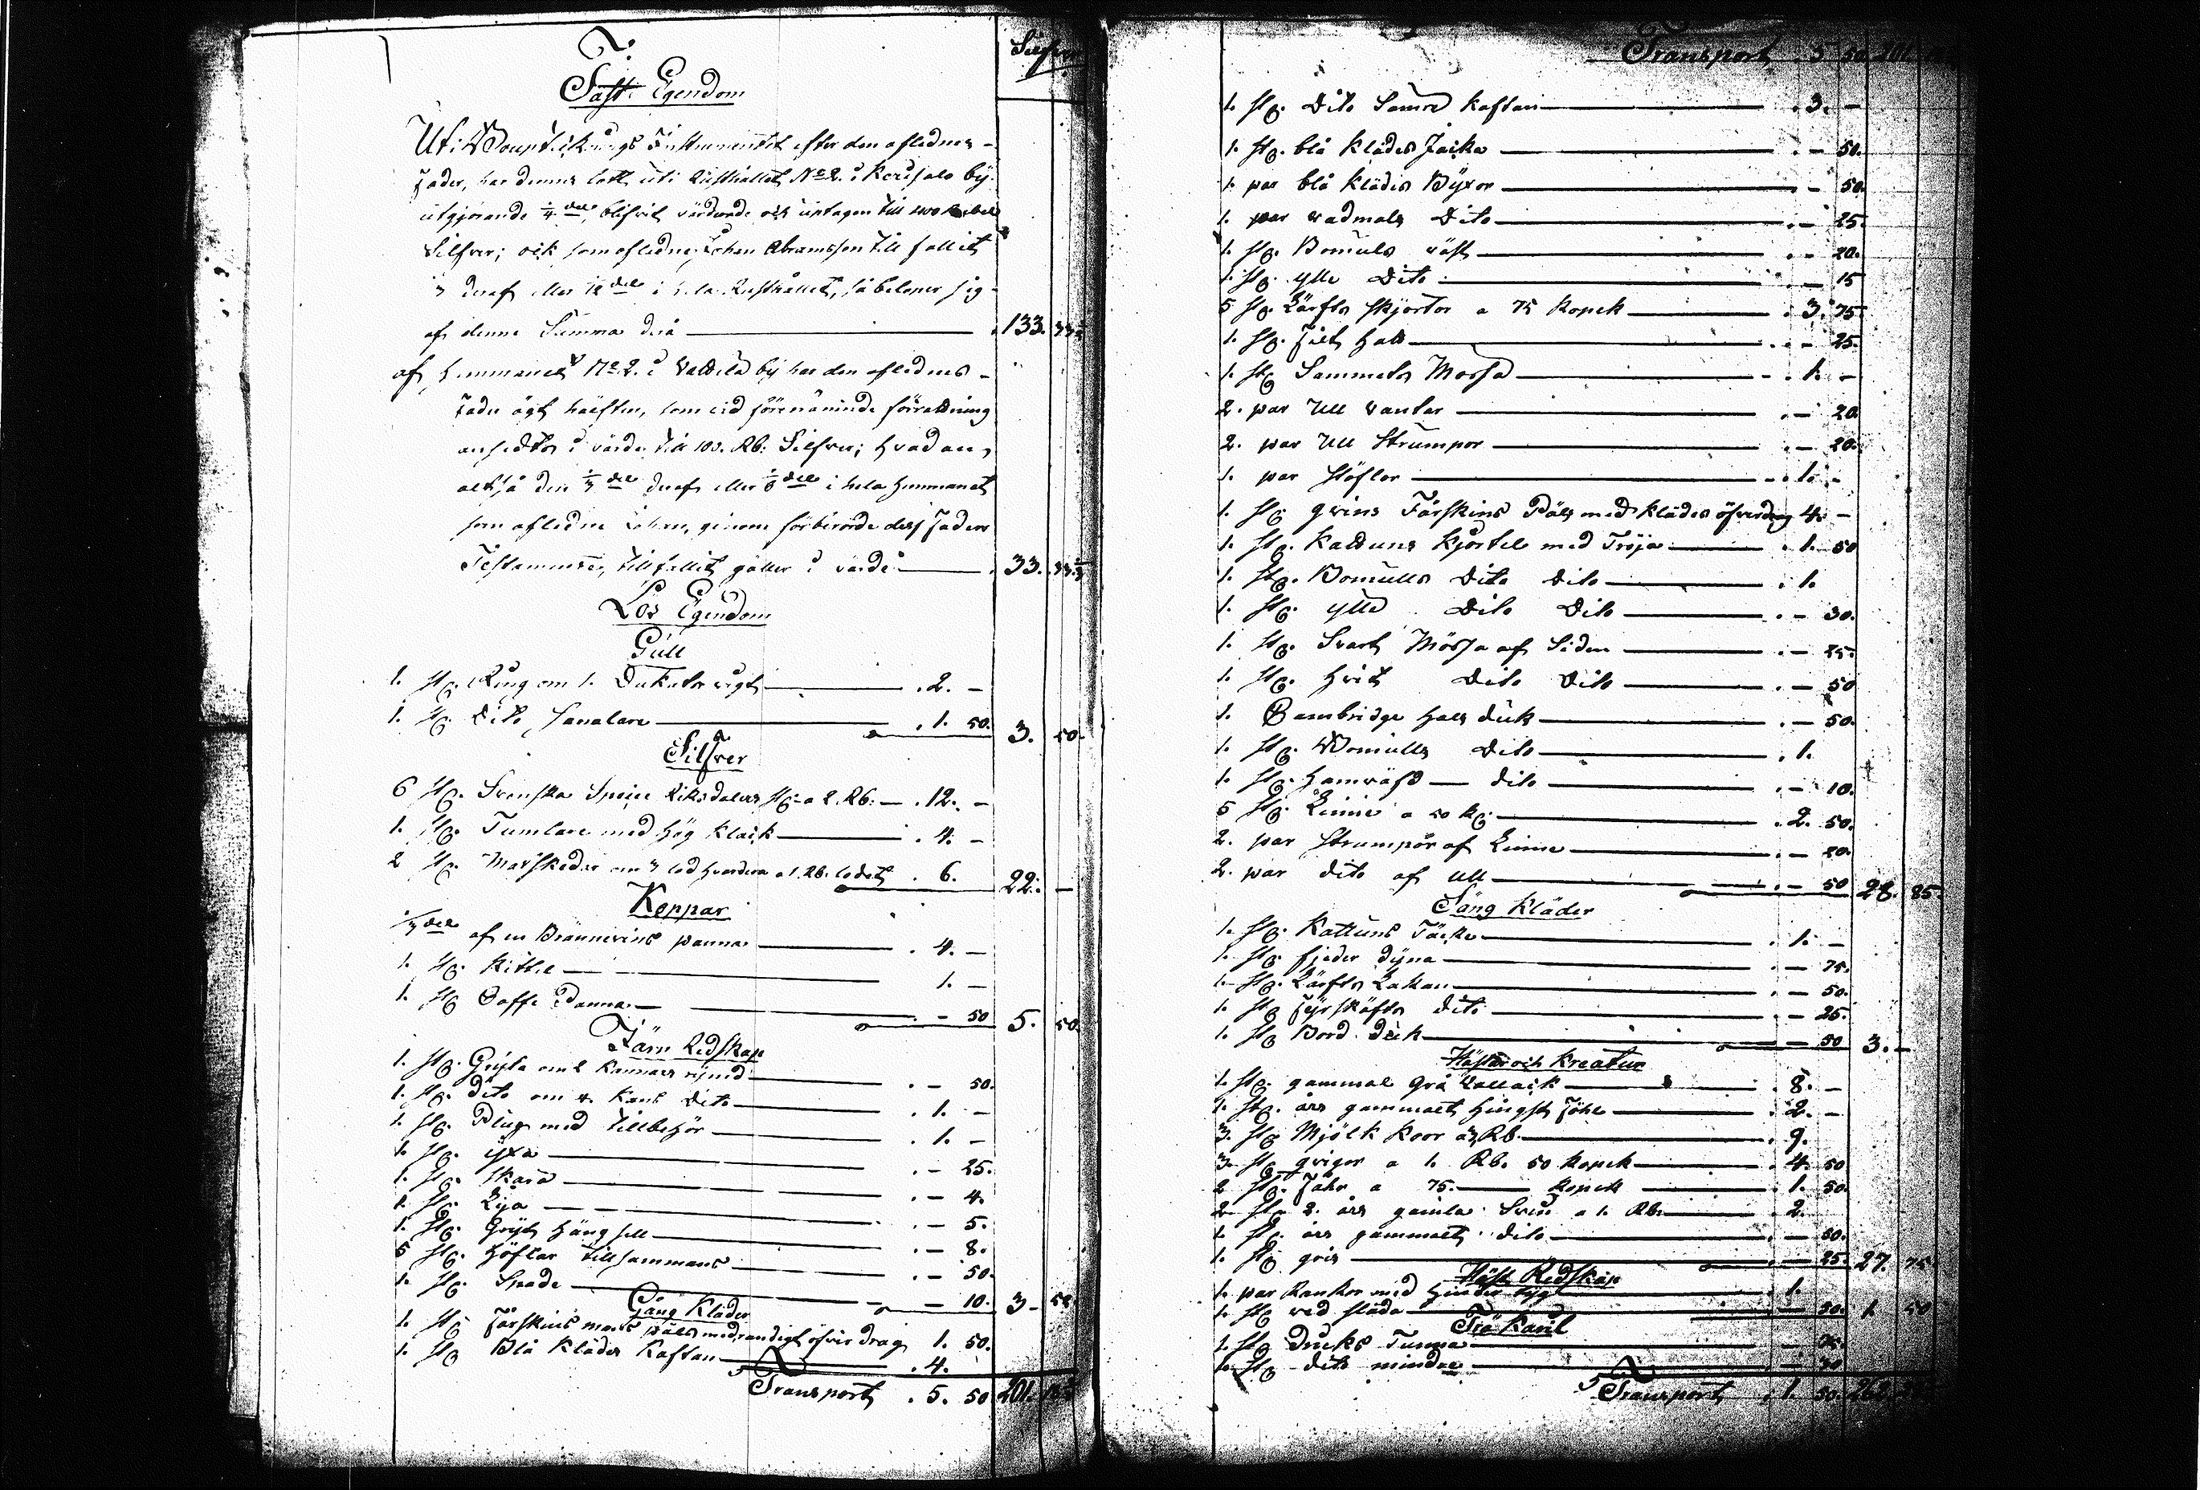 Silfver
Fast Egendom
Uti Boupteknings Instrumentet efter den aflednes
Fader, har dennes lott uti Rusthållet No 2. i by
utgjörande 1/4 del, blifvit värderade och uptagen till 400 Rubel
Silfver; och som aflednes Johan Abramsson till fallit
1/3 deraf eller 12 del i hela Rusthållet, så beloper sig
af denne Summa derå 133. 33 1/3
af Hemmanet No 2. i by har den aflednes
Fader ägt hälften, som vid förenäminde förrättning
ansedtes i värde till 100. Rb: Silfver; hvadan
altså den 1/3 del deraf eller 1/6 del i hela Hemmanet
som aflednes Johan, genom förberörde dess Faders
Testamente, tillfallit gäller i värde 33. 33 1/3
Lös Egendom
Gull
1. St. Ring om 1. Dukaters vigt 2. -
1. St. Dito, smalare 1. 50. 3. 50.
Silfver
6 St. Svenska Specie Riksdalers St. a 2. Rb. 12. -
1. St. Tumlare med hög klack 4. -
2 St. Matskedar om 3 lod hvardera a 1. Rb. lodet 6. 22. -
Koppar
1/3 del af en Brännevins panna 4. -
1. St. Kittel 1. -
1. St. Caffe Panna - 50 5. 50.
Järn Redskap
1. St. Gryta om 2 Kannors rymd - 50.
1. St. dito om 4 Kans Dito 1. -
1. St. Plug med tillbehör 1. -
1. St. yxa - 25.
1. St. skära - 4.
1. St. Lija - 5.
1. St. Gryt Häng sell - 8.
5 St. Höflar tillsammans - 50.
1. St. Spade - 10. 3 - 52
Gång Kläder
1. St. Fårskins mans päls med randigt öfver drag 1. 50.
1. St. Blå Klädes Kaftan 4.
Transport 5. 50 201.
Transport 5 50. 201.
1. St. Dito Sämre Kaftan 3. -
1. St. blå Klädes Jacka - 50.
1. par blå Klädes Byxor - 50.
1. par vadmals Dito - 25.
1. St. Bomuls väst - 20.
1. St. ylle Dito - 15
5 St. Lärfts skjortor a 75 Kopek 3. 75
1. St. Filt Hatt - 25.
1. St. Sammets Mössa 1. -
2. par Ull vantar - 20
2. par Ull Strumpor - 20.
1. par Stöflar 1. -
1. St. qvins Fårskins Päls med klädes öfverdrag 4. -
1. St. Kattuns Kjortel med Tröja 1. 50
1. St. Bomulls Dito Dito 1.
1. St. ylle Dito Dito - 30.
1. St. Svart Mössa af Siden - 25.
1. St. Hvit Dito Dito - 50
1. Cambridge Hals duk - 50.
1. St. Bomulls Dito 1.
1. St. Hemväfd dito - 10.
5 St. Linne a 50 K. 2. 50.
2. par Strumpor af Linne - 20.
2. par dito af ull - 50 28. 85.
Säng Kläder
1. St. Kattuns Täcke 1. -
1. St. fjeder dyna - 75.
1. St. Lärfts Lakan - 50.
1. St. Fyrskäfts dito - 25.
1. St. Bord duk - 50 3. -
Hästar och Kreatur
1. St. gammal grå Vallack 8. -
1. St. års gammalt Hingst Föhl 2. -
3. St. Mjölk Koor a 3. Rb. 9.
3. St. qvigor a 1. Rb. 50 Kopek 4. 50
2 St. Fåhr a 75. Kopek 1. 50.
2 St. 2. års gamla Svin a 1. Rb. 2.
1. St. års gammalt dito - 50.
1. St. gris - 25. 27. 75
Häst Redskap
1. par Rankor med 1.
1. St. ved släda - 50. 1. 50
Trä Karil
1. St. Tunna - 75.
1. St. dito mindre
Transport 1. 50.